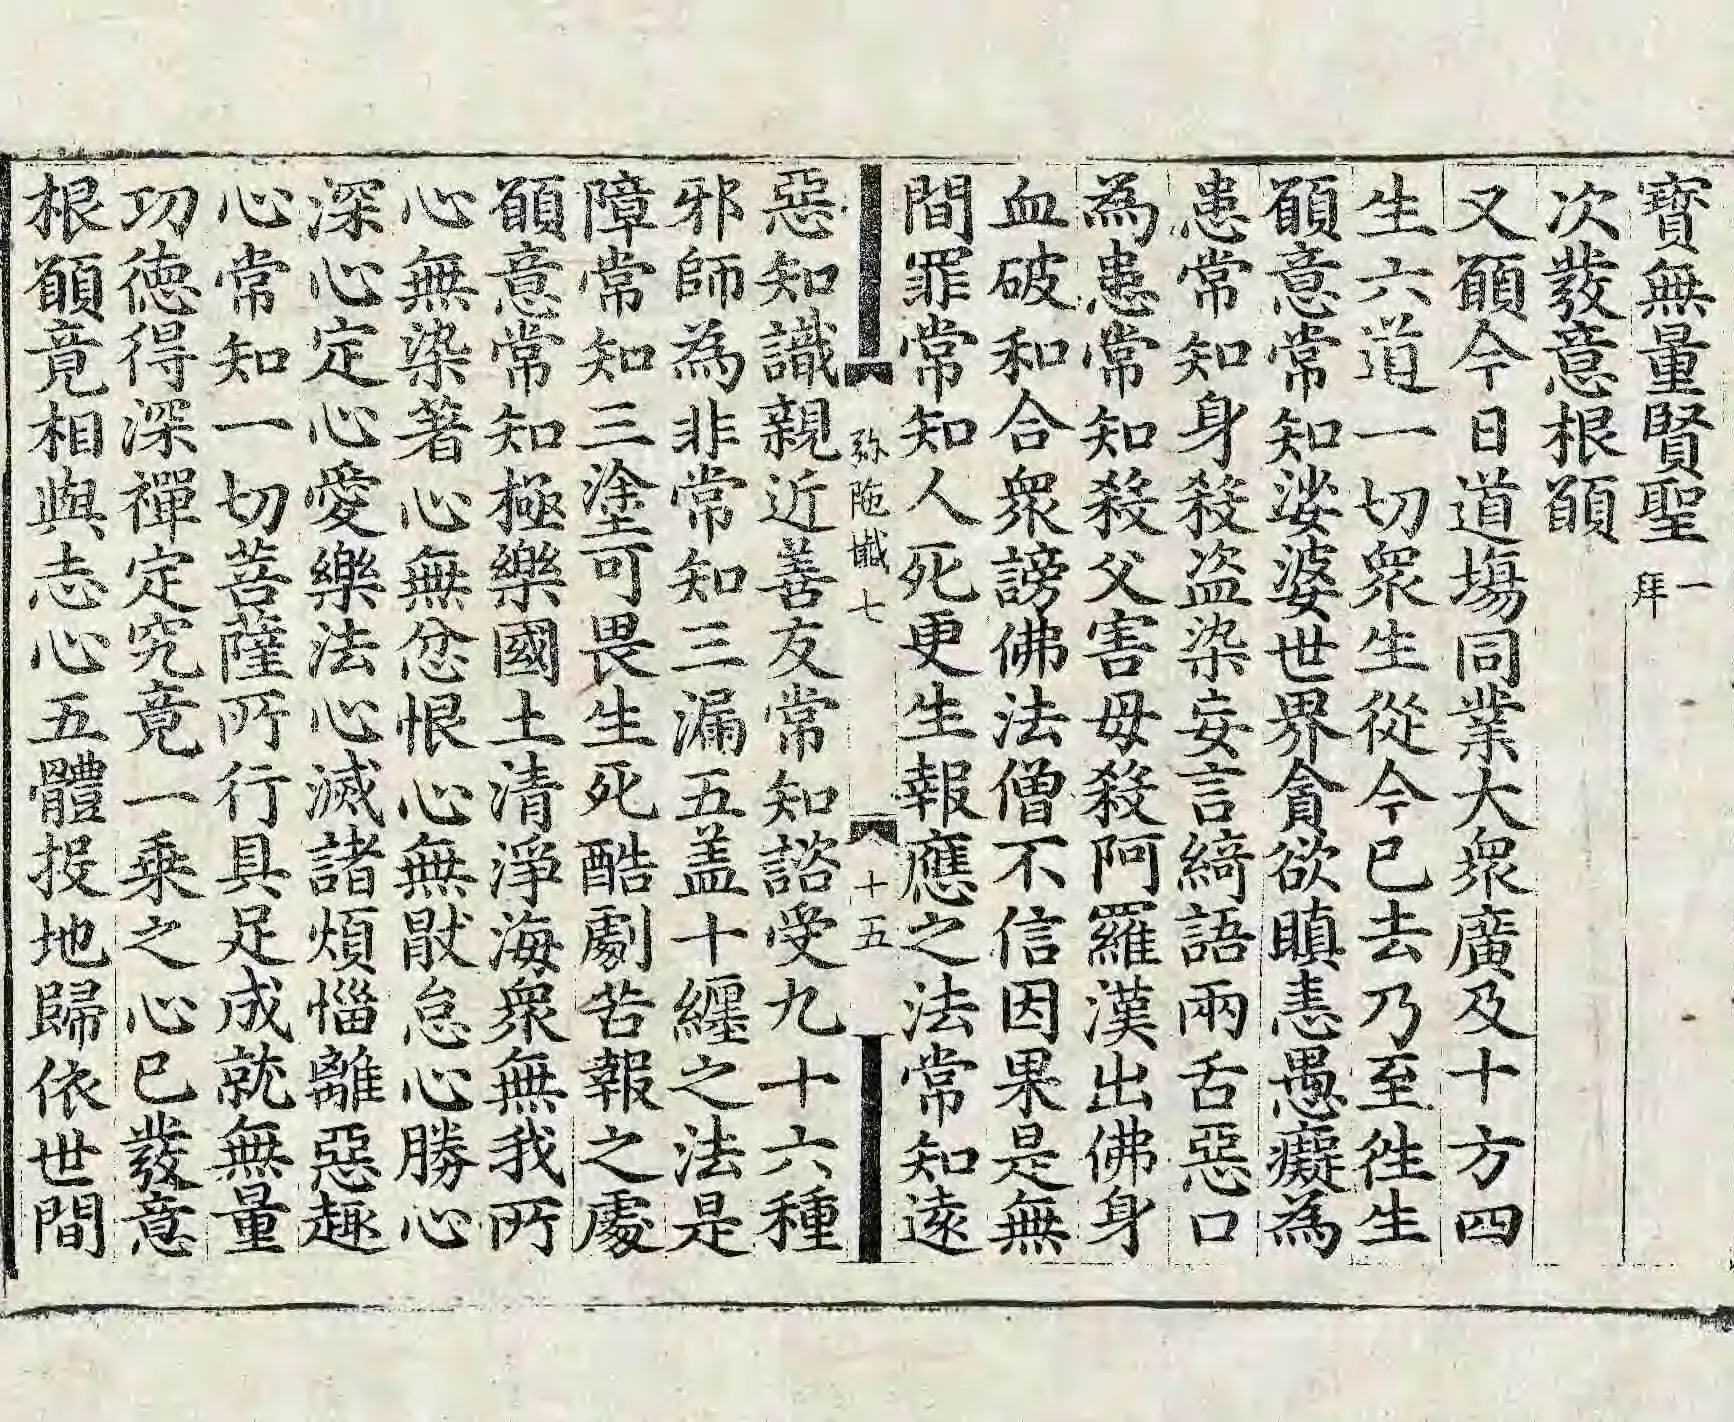 寳無量賢聖一拜
次發意根願
又願今日道塲同業大衆廣及十方四
生六道一切衆生從今已去乃至徃生
願意常知娑婆世界貪欲瞋恚愚癡為
患常知身殺盗染妄言綺語兩舌惡口
為患常知殺父害母殺阿羅漢出佛身
血破和合衆謗佛法僧不信因果是無
間罪常知人死更生報應之法常知遠
弥陁懴七 十五
惡知識親近善友常知諮受九十六種
邪師為非常知三漏五盖十纏之法是
障常知三塗可畏生死酷劇苦報之處
願意常知極樂國土清淨海衆無我所
心無染著心無忿恨心無猒怠心勝心
深心定心愛樂法心滅諸煩惱離惡趣
心常知一切菩薩所行具足成就無量
功德得深禪定究竟一乘之心已發意
根願竟相與志心五體投地歸依世間